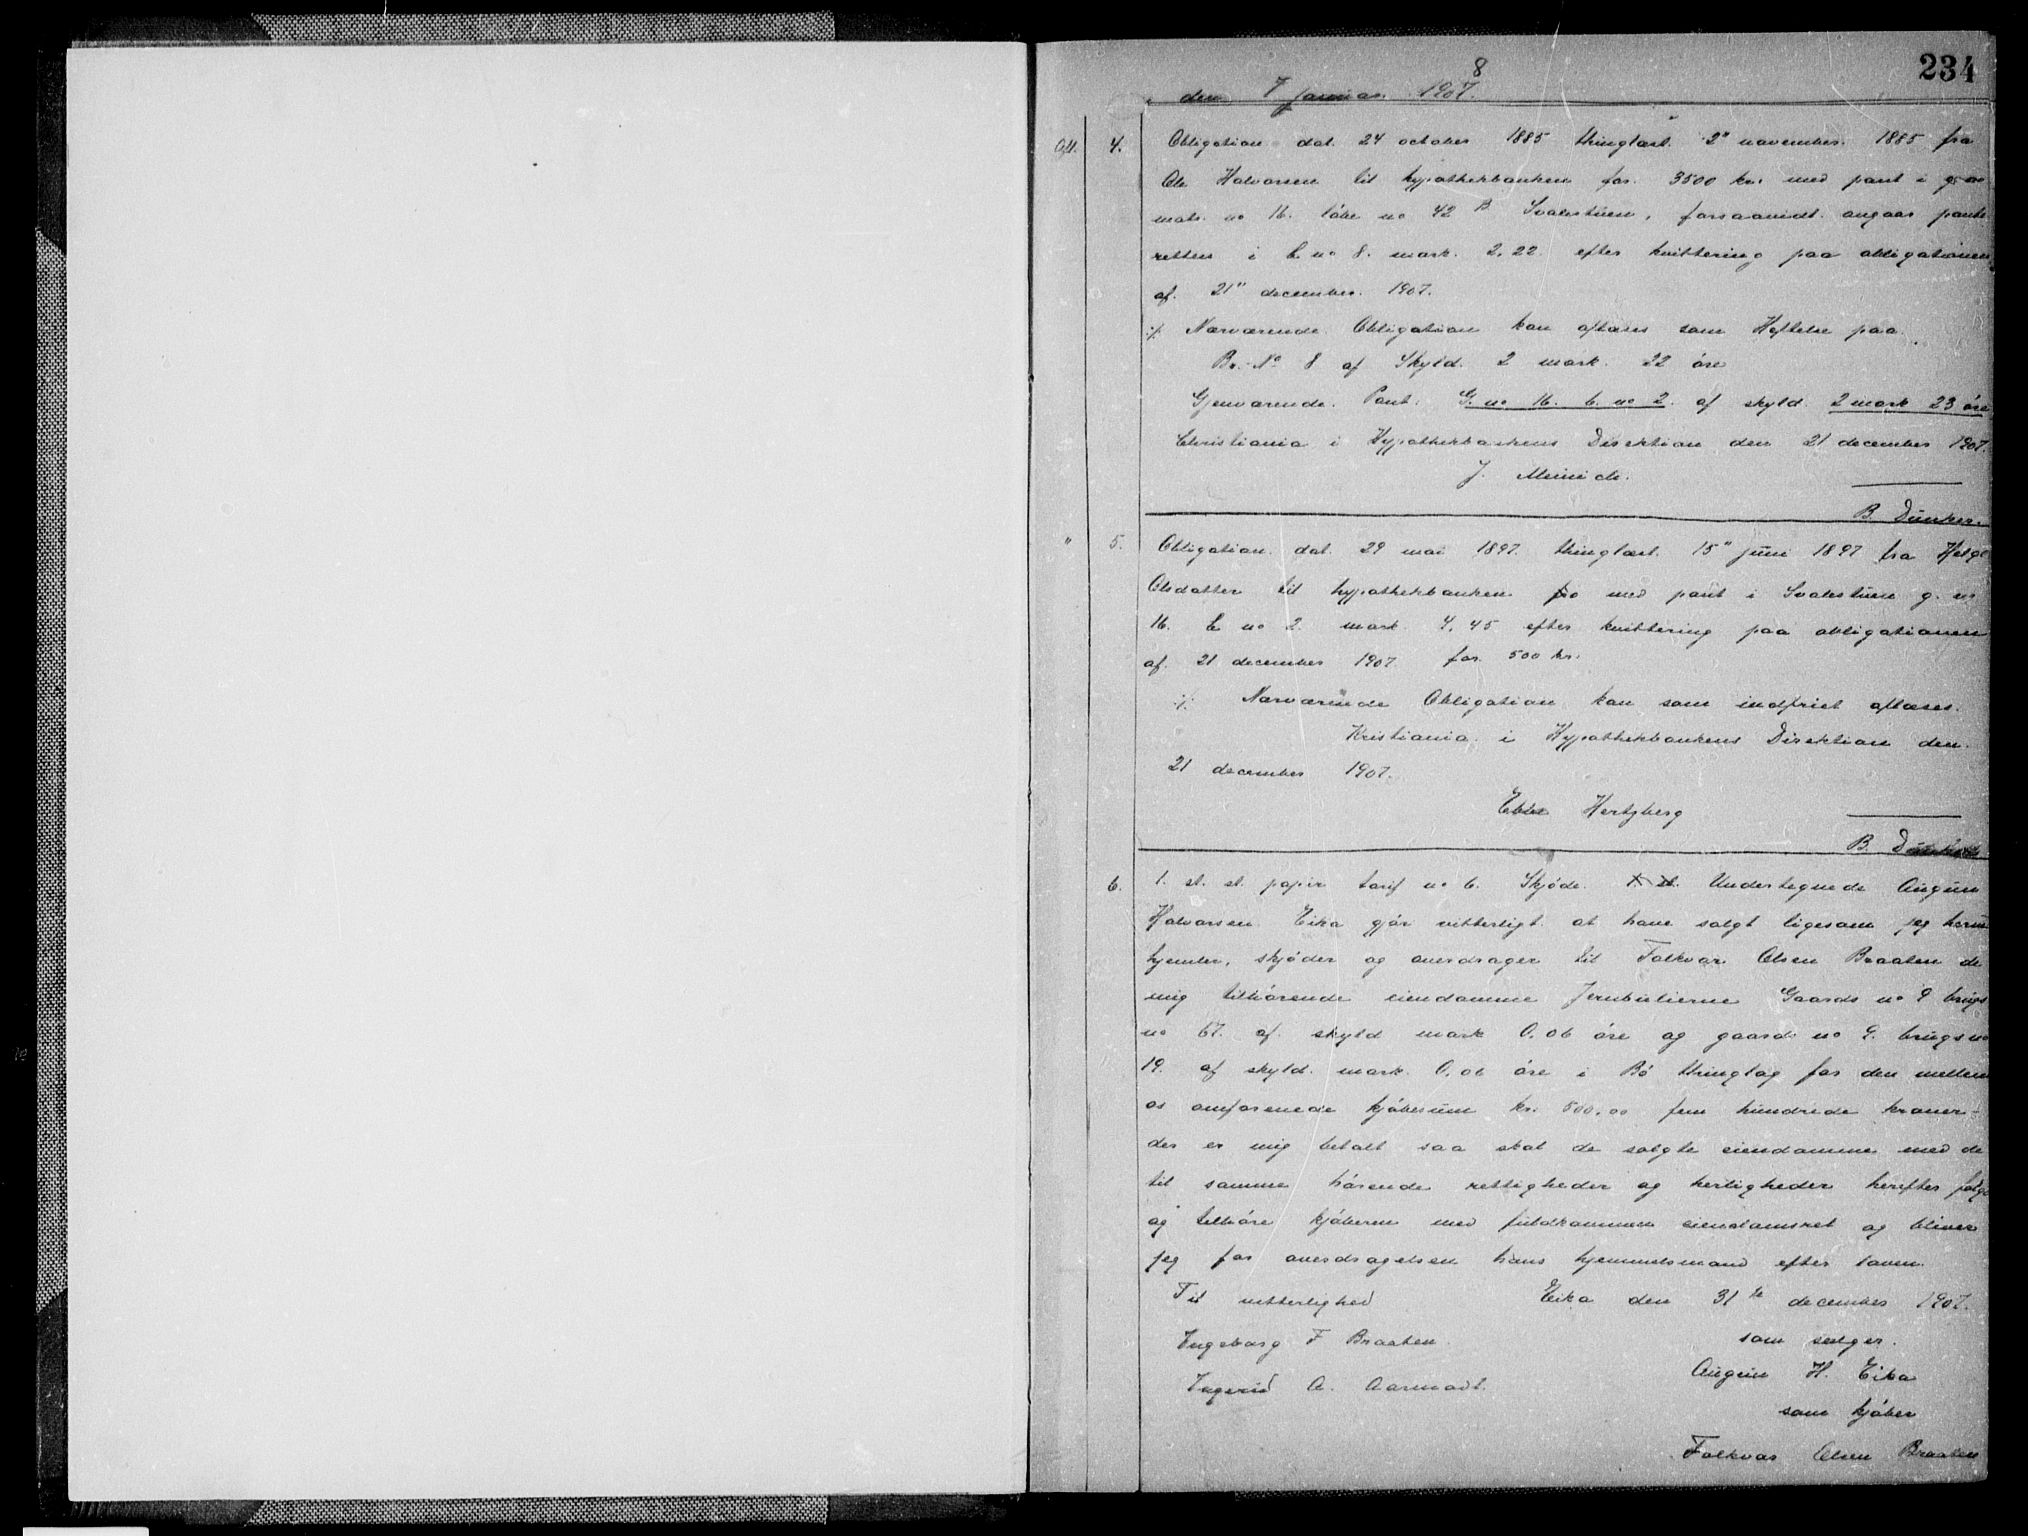 234
8
den 7 Januar 1907.
Afl. 4. Obligation dat. 24 october 1885 thinglæst. 2" november. 1885 fra
Ole Halvorsen til hypothekbanken for. 3500 kr. med pant i g. no
matr. no 16. løbe no 42 B Svalestuen, forsaavidt. angaar pante
retten i b no 8. mark. 2,22 efter kvittering paa obligationen
af. 21" december. 1907.
./. Nærværende Obligation kan aflæses som Heftelse paa
Br. No 8 af Skyld. 2 mark. 22 øre
Gjenværende. Pant. G. no 16. b. no 2. af skyld. 2 mark 23 øre
Christiania i Hypothekbankens Direktion den 21 december 1907.
J. Meinich.
B. Dunker.
" 5. Obligation. dat. 29 mai 1897. thinglæst. 15" juni 1897 fra Helge
Olsdatter til hypothekbanken med pant i Svalestuen g. no
16. b no 2. mark. 4,45 efter kvittering paa obligationen
af. 21 december 1907 for. 500 kr.
./. Nærværende Obligation kan som indfriet aflæses.
Kristiania i Hypothekbankens Direktion den.
21 december 1907.
Ebbe Hertzberg
B. Dunker
6. 1. st. st. papir tarif no 6. Skjøde. Undertegnede Augun
Halvorsen Eika gjør vitterligt at have solgt ligesom jeg herved
hjemler, skjøder og overdrager til Folkvar Olsen Braaten de
mig tilhørende eiendomme Jernbulierne Gaards no 9 brugs
no 67. af. skyld mark 0,06 øre og gaards no 9. brugs no
19. af skyld. mark. 0,06 øre i Bø thinglag for den mellem
os omforenede kjøbesum kr. 500,00 fem hundrede kroner -
der er mig betalt saa skal de solgte eiendomme med de
til samme hørende rettigheder og herligheder herefter følge
og tilhøre kjøberen med fuldkommen eiendomsret og bliver
jeg for overdragelsen hans hjemmelsmand efter loven.
Til vitterlighed Eika den 31te december 1907.
Ingeborg F Braaten. som sælger.
Ingerid A. Augun H. Eika
som kjøber
Folkvar Olsen Braaten